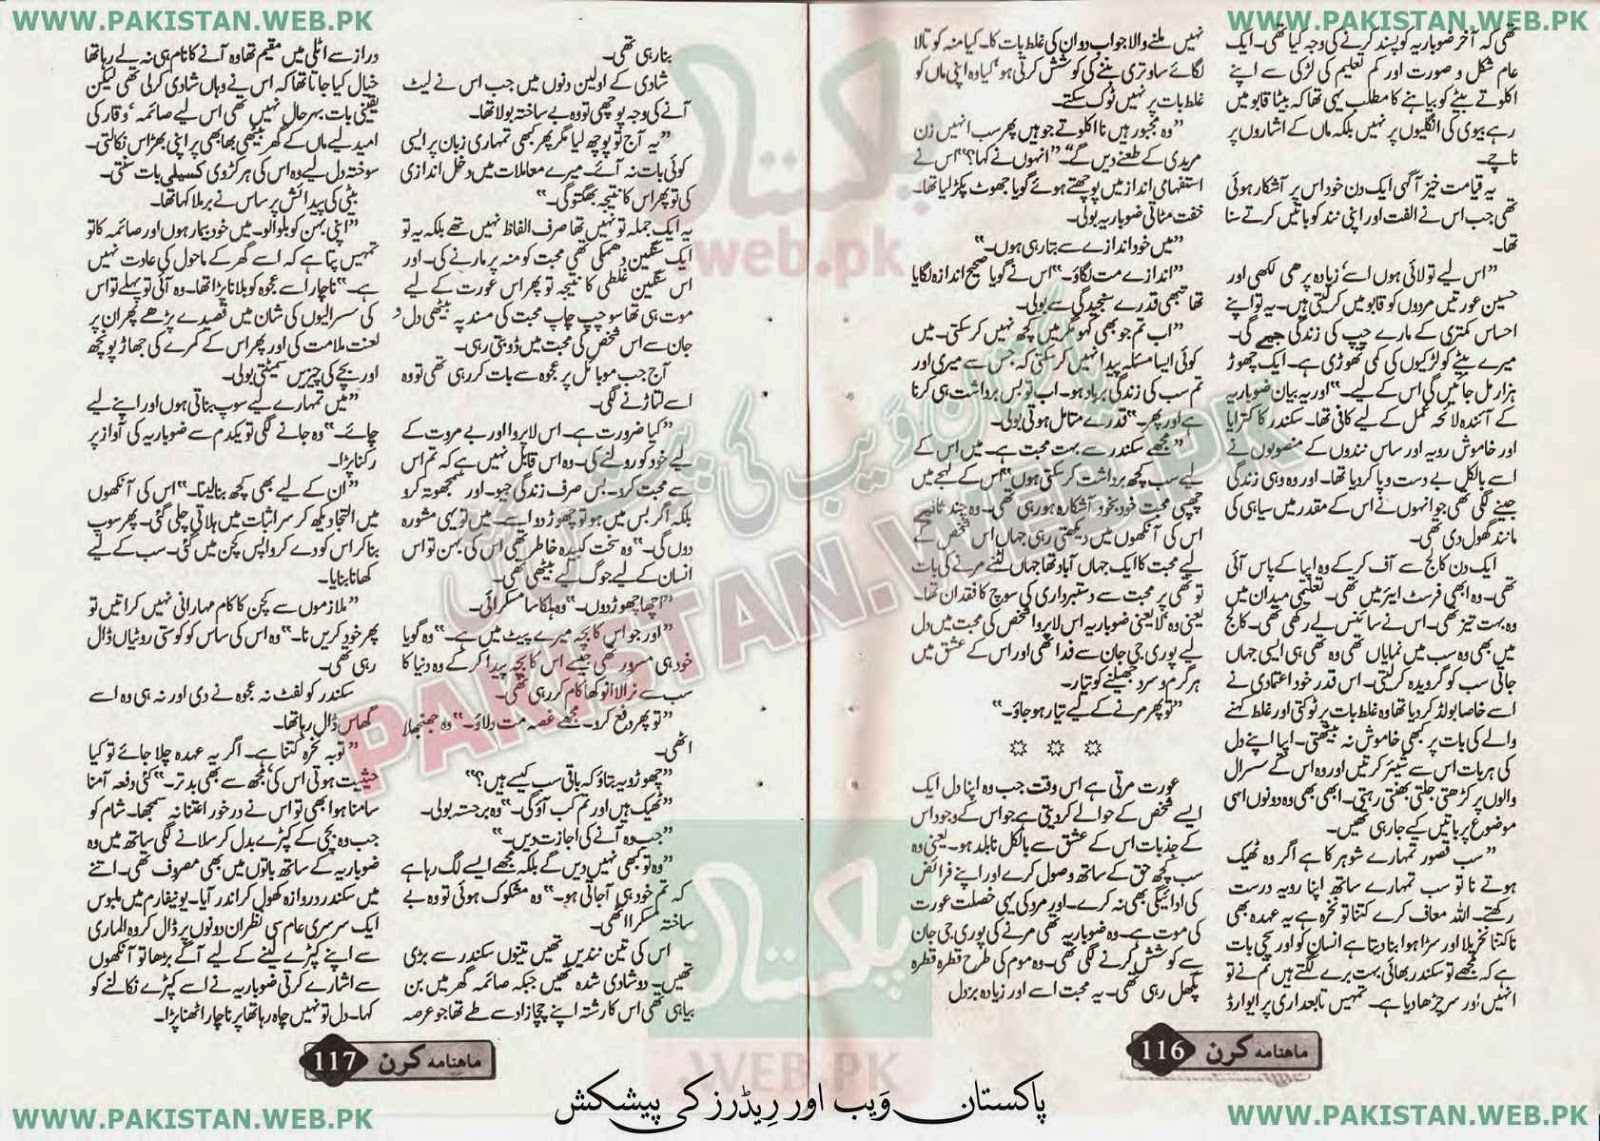 WWW.PAKISTAN.WEB.PK
WWW.PAKISTAN.WEB.PK
تھی کہ آخر ضوباریہ کو پسند کرنے کی وجہ کیا تھی۔ ایک
عام شکل و صورت اور کم تعلیم کی لڑکی سے اپنے
اکلوتے بیٹے کو بیاہنے کا مطلب یہی تھا کہ بیٹا قابو میں
رہے بیوی کی انگلیوں پر نہیں بلکہ ماں کے اشاروں پر
ناچے۔
یہ قیامت خیز آگہی ایک دن خود اس پر آشکار ہوئی
تھی جب اس نے الفت اور اپنی نند کو باتیں کرتے سنا
تھا۔
”اس لیے تو لائی ہوں اسے‘ زیادہ پڑھی لکھی اور
حسین عورتیں مردوں کو قابو میں کر لیتی ہیں۔ یہ تو اپنے
احساس کمتری کے مارے چپ کی زندگی جیے گی۔
میرے بیٹے کو لڑکیوں کی کمی تھوڑی ہے۔ ایک چھوڑ
ہزار مل جائیں گی اس کے لیے۔“ اور یہ بیان ضوباریہ
کے آئندہ لائحہ عمل کے لیے کافی تھا۔ سکندر کا کترایا
اور خاموش رویہ اور ساس نندوں کے منصوبوں نے
اسے بالکل بے دست و پا کر دیا تھا۔ اور وہ وہی زندگی
جینے لگی تھی جو انہوں نے اس کے مقدر میں سیاہی کی
مانند گھول دی تھی۔
ایک دن کالج سے آف کر کے وہ اپیا کے پاس آئی
تھی۔ وہ ابھی فرسٹ ایئر میں تھی۔ تعلیمی میدان میں
وہ بہت تیز تھی۔ اس نے سائنس لے رکھی تھی۔ کالج
میں بھی وہ سب میں نمایاں تھی وہ تھی ہی ایسی جہاں
جاتی سب کو گرویدہ کر لیتی۔ اس قدر خود اعتمادی نے
اسے خاصا بولڈ کر دیا تھا وہ غلط بات پر ٹوکتی اور غلط کہنے
والے کی بات پر کبھی خاموش نہ بیٹھتی۔ اپیا اپنے دل
کی ہر بات اس سے شیئر کرتیں اور وہ اس کے سسرال
والوں پر کڑھتی جلتی بھنتی رہتی۔ ابھی بھی وہ دونوں اسی
موضوع پر باتیں کیے جا رہی تھیں۔
”سب قصور تمہارے شوہر کا ہے اگر وہ ٹھیک
ہوتے نا تو سب تمہارے ساتھ اپنا رویہ درست
رکھتے۔ اللہ معاف کرے کتنا تو نخرہ ہے یہ عہدہ بھی
نا کتنا نخریلا اور سڑا ہوا بنا دیتا ہے انسان کو‘ اور سچی بات
ہے کہ مجھے تو سکندر بھائی بہت برے لگتے ہیں تم نے تو
انہیں اور سر چڑھا دیا ہے۔ تمہیں تابعداری پر ایوارڈ
نہیں ملنے والا جواب دو ان کی غلط بات کا۔ کیا منہ کو تالا
لگائے ساوتری بننے کی کوشش کرتی ہو‘ کیا وہ اپنی ماں کو
غلط بات پر نہیں ٹوک سکتے۔
”وہ مجبور ہیں نا اکلوتے جو ہیں پھر سب انہیں زن
مریدی کے طعنے دیں گے۔“ ”انہوں نے کہا؟“ اس نے
استفہامی انداز میں پوچھتے ہوئے گویا جھوٹ پکڑ لیا تھا۔
خفت مٹاتی ضوباریہ بولی۔
”میں خود اندازے سے بتا رہی ہوں۔“
”اندازے مت لگاؤ۔“ اس نے گویا صحیح اندازہ لگایا
تھا تبھی قدرے سنجیدگی سے بولی۔
”اب تم جو بھی کہو مگر میں کچھ نہیں کر سکتی۔ میں
کوئی ایسا مسئلہ پیدا نہیں کر سکتی کہ جس سے میری اور
تم سب کی زندگی برباد ہو۔ اب تو بس برداشت ہی کرنا
ہے اور پھر۔“ قدرے متامل ہوتی بولی۔
”مجھے سکندر سے بہت محبت ہے۔ میں اس کے
لیے سب کچھ برداشت کر سکتی ہوں“ اس کے لہجے میں
چھپی محبت خود بخود آشکارہ ہو رہی تھی۔ وہ چند ثانیے
اس کی آنکھوں میں دیکھتی رہی جہاں اس شخص کے
لیے محبت کا ایک جہاں آباد تھا جہاں لٹنے مرنے کی بات
تو تھی پر محبت سے دستبرداری کی سوچ کا فقدان تھا۔
یعنی وہ لا یعنی ضوباریہ اس لاپروا شخص کی محبت میں دل
لیے پوری جی جان سے فدا تھی اور اس کے عشق میں
ہر گرم و سرد جھیلنے کو تیار۔
”تو پھر مرنے کے لیے تیار ہو جاؤ۔“
☼ ☼ ☼
عورت مرتی ہے اس وقت جب وہ اپنا دل ایک
ایسے شخص کے حوالے کر دیتی ہے جو اس کے وجود اس
کے جذبات اس کے عشق سے بالکل نابلد ہو۔ یعنی وہ
سب کچھ حق کے ساتھ وصول کرے اور اپنے فرائض
کی ادائیگی بھی نہ کرے۔ اور مرد کی یہی خصلت عورت
کی موت ہے۔ وہ ضوباریہ تھی مرنے کی پوری جی جان
سے کوشش کرنے لگی تھی۔ وہ موم کی طرح قطرہ قطرہ
پگھل رہی تھی۔ یہ محبت اسے اور زیادہ بزدل
ماہنامہ کرن 116
بنا رہی تھی۔
شادی کے اولین دنوں میں جب اس نے لیٹ
آنے کی وجہ پوچھی تو وہ بے ساختہ بولا تھا۔
”یہ آج تو پوچھ لیا مگر پھر کبھی تمہاری زبان پر ایسی
کوئی بات نہ آئے۔ میرے معاملات میں دخل اندازی
کی تو پھر اس کا نتیجہ بھگتو گی۔“
یہ ایک جملہ تو نہیں تھا صرف الفاظ نہیں تھے بلکہ یہ تو
ایک سنگین دھمکی تھی محبت کو منہ پر مارنے کی۔ اور
اس سنگین غلطی کا نتیجہ تو پھر اس عورت کے لیے
موت ہی تھا سو چپ چاپ محبت کی مسند پہ بیٹھی دل و
جان سے اس شخص کی محبت میں ڈوبتی رہی۔
آج جب موبائل پر عجوہ سے بات کر رہی تھی تو وہ
اسے لتاڑنے لگی۔
”کیا ضرورت ہے۔ اس لاپروا اور بے مروت کے
لیے خود کو رولنے کی۔ وہ اس قابل نہیں ہے کہ تم اس
سے محبت کرو۔ بس صرف زندگی جیو۔ اور سمجھوتہ کرو
بلکہ اگر بس میں ہو تو چھوڑ دو اسے۔ میں تو یہی مشورہ
دوں گی۔“ وہ سخت کبیدہ خاطر تھی اس کی بہن تو اس
انسان کے لیے جوگ لیے بیٹھی تھی۔
”اچھا چھوڑ دوں۔“ وہ ہلکا سا مسکرائی۔
”اور جو اس کا بچہ میرے پیٹ میں ہے۔“ وہ گویا
خود ہی مسرور تھی جیسے اس کا بچہ پیدا کر کے وہ دنیا کا
سب سے نرالا انوکھا کام کر رہی تھی۔
”تو پھر دفع کرو۔ مجھے غصہ مت دلاؤ۔“ وہ جھنجھلا
اٹھی۔
”چھوڑو یہ بتاؤ کہ باقی سب کیسے ہیں؟“
”ٹھیک ہیں اور تم کب آؤ گی۔“ وہ برجستہ بولی۔
”جب وہ آنے کی اجازت دیں۔“
”وہ تو کبھی نہیں دیں گے بلکہ مجھے ایسے لگ رہا ہے
کہ تم خود ہی آ جاتی ہو۔“ وہ مشکوک ہوئی تو وہ بے
ساختہ مسکرا اٹھی۔
اس کی تین نندیں تھیں تینوں سکندر سے بڑی
تھیں۔ دو شادی شدہ تھیں جبکہ صائمہ گھر میں بن
بیاہی تھی اس کا رشتہ اپنے چچا زاد سے طے تھا جو عرصہ
دراز سے اٹلی میں مقیم تھا وہ آنے کا نام ہی نہ لے رہا تھا
خیال کیا جاتا تھا کہ اس نے وہاں شادی کر لی تھی لیکن
یقینی بات بہرحال نہیں تھی اس لیے صائمہ‘ وقار کی
امید لیے ماں کے گھر بیٹھی بھابھی پر اپنی بھڑاس نکالتی۔
سوختہ دل لیے وہ اس کی ہر کڑوی کسیلی بات سنتی۔
بیٹی کی پیدائش پر ساس نے برملا کہا تھا۔
”اپنی بہن کو بلوالو۔ میں خود بیمار ہوں اور صائمہ کا تو
تمہیں پتا ہے کہ اسے گھر کے ماحول کی عادت نہیں
ہے۔“ ناچار اسے عجوہ کو بلانا پڑا تھا۔ وہ آئی تو پہلے تو اس
کی سسرالیوں کی شان میں قصیدے پڑھے پھر ان پر
لعنت ملامت کی اور پھر اس کے کمرے کی جھاڑ پونچھ
اور بچے کی چیزیں سمیٹتی بولی۔
”میں تمہارے لیے سوپ بناتی ہوں اور اپنے لیے
چائے۔“ وہ جانے لگی تو یکدم سے ضوباریہ کی آواز پر
رکنا پڑا۔
”ان کے لیے بھی کچھ بنا لینا۔“ اس کی آنکھوں
میں التجا دیکھ کر سر اثبات میں ہلاتی چلی گئی۔ پھر سوپ
بنا کر اس کو دے کر واپس کچن میں گئی۔ سب کے لیے
کھانا بنایا۔
”ملازموں سے کچن کا کام مہارانی نہیں کراتیں تو
پھر خود کریں نا۔“ وہ اس کی ساس کو کوستی روٹیاں ڈال
رہی تھی۔
سکندر کو لفٹ نہ عجوہ نے دی اور نہ ہی وہ اسے
گھاس ڈال رہا تھا۔
”توبہ نخرہ کتنا ہے۔ اگر یہ عہدہ چلا جائے تو کیا
حیثیت ہوتی اس کی‘ مجھ سے بھی بدتر۔“ کئی دفعہ آمنا
سامنا ہوا بھی تو اس نے در خور اعتنا نہ سمجھا۔ شام کو
جب وہ بچی کے کپڑے بدل کر سلانے لگی ساتھ میں وہ
ضوباریہ کے ساتھ باتوں میں بھی مصروف تھی۔ اتنے
میں سکندر دروازہ کھول کر اندر آیا۔ یونیفارم میں ملبوس
ایک سرسری عام سی نظر ان دونوں پر ڈال کر وہ الماری
سے اپنے کپڑے لینے کے لیے آگے بڑھا تو آنکھوں
سے اشارے کرتی ضوباریہ نے اسے کپڑے نکالنے کو
کہا۔ دل تو نہیں چاہ رہا تھا پر ناچار اٹھنا پڑا۔
ماہنامہ کرن 117
پاکستان
.web.pk
PAKISTAN.WEB.PK
پاکستان
WEB.PK
پاکستان ویب اور ریڈرز کی پیشکش
WWW.PAKISTAN.WEB.PK
WWW.PAKISTAN.WEB.PK